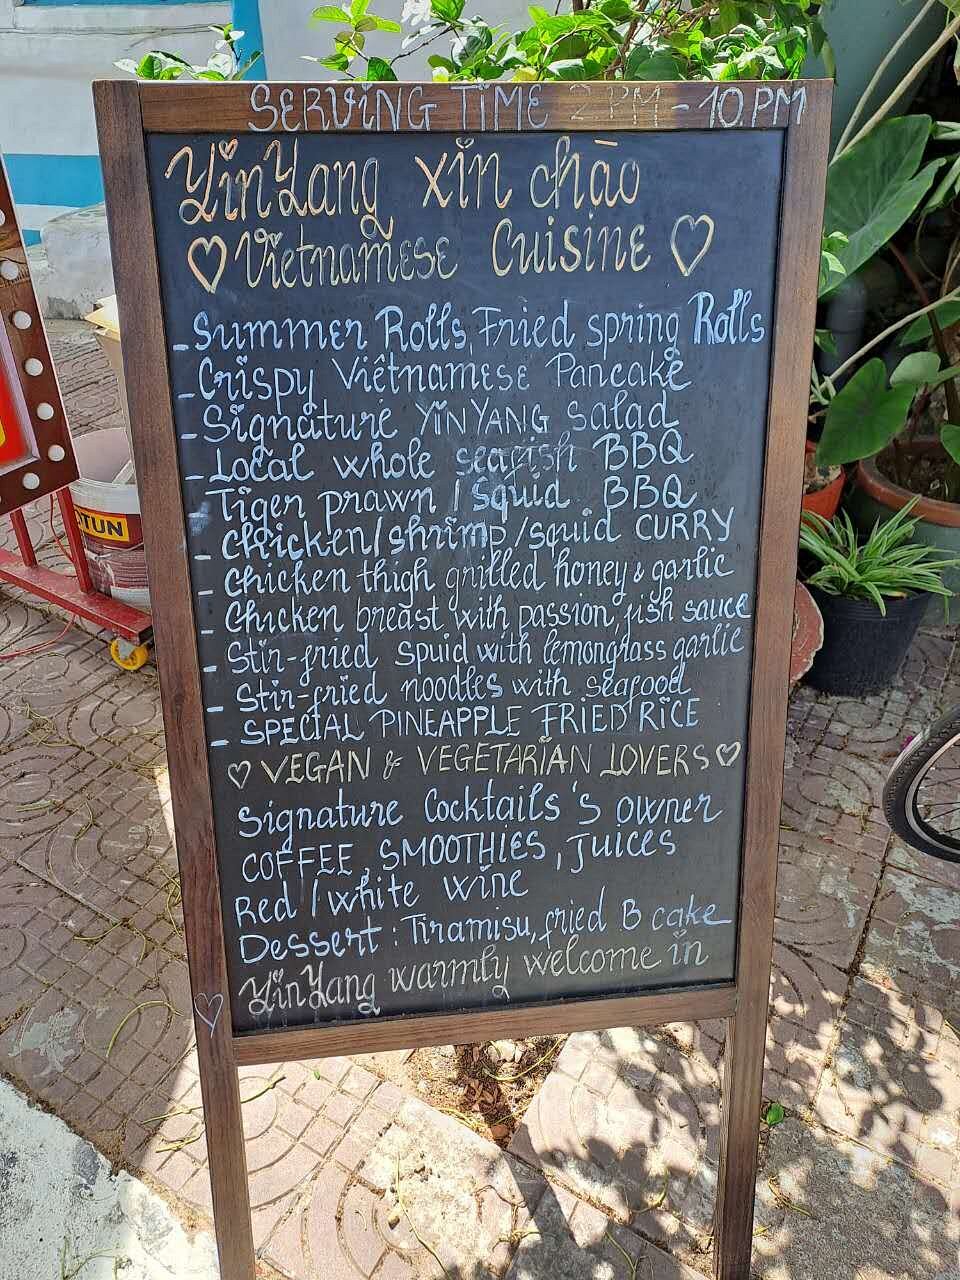 SERVING TIME 2 PM - 10.PM
YinYang xin chāo
♡ Vietnamese Cuisine ♡
- Summer Rolls, Fried spring Rolls
- Crispy Viêtnamese Pancake
- Signature YINYANG Salad
- Local whole seafish BBQ
- Tiger prawn / Squid BBQ
- Chicken/shrimp/squid CURRY
- Chicken thigh grilled honey & garlic
- Chicken breast with passion, fish sauce
- Stir-fried spuid with lemongrass garlic
- Stir-fried noodles with seafood
- SPECIAL PINEAPPLE FRIED RICE
♡ VEGAN & VEGETARIAN LOVERS ♡
Signature Cocktails 's owner
COFFEE, SMOOTHIES, JUICES
Red / white wine
Dessert : Tiramisu, fried B cake
YinYang warmly welcome in
TUN